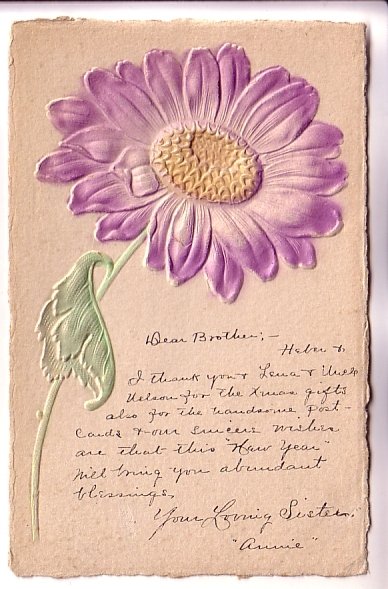 Dear Brother; –
Heber &
I thank you & Lena & Uncle
Nelson for the Xmas gifts
also for the handsome Post-
Cards & our sincere wishes
are that this "New Year"
will bring you abundant
blessings.
Your Loving Sister,
"Annie"